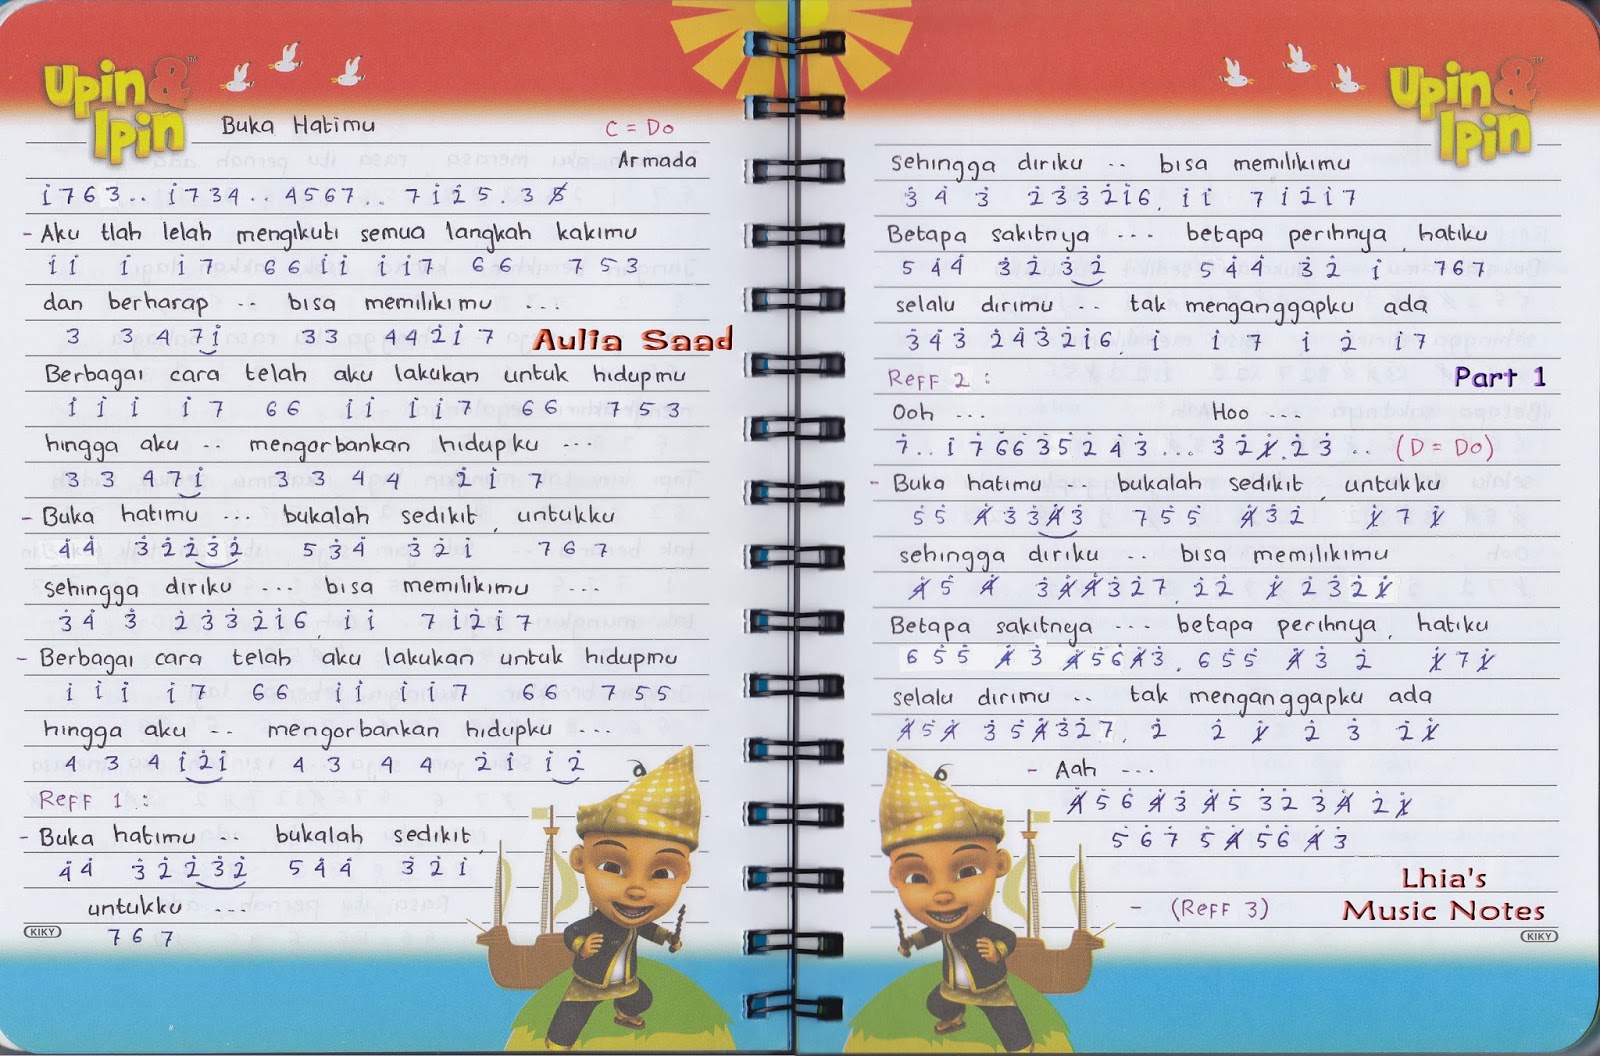 Upin & Ipin™
Buka Hatimu C = Do
Armada
1̇ 7 6 3 .. 1̇ 7 3 4 .. 4 5 6 7 .. 7 1̇ 2̇ 5 . 3 5̸
- Aku tlah lelah mengikuti semua langkah kakimu
1̇ 1̇ 1̇ 1̇ 7 6 6 1̇ 1̇ 1̇ 1̇ 7 6 6 7 5 3
dan berharap .. bisa memilikimu ...
3 3 4 7 1̇ 3 3 4 4 2̇ 1̇ 7
Aulia Saad
Berbagai cara telah aku lakukan untuk hidupmu
1̇ 1̇ 1̇ 1̇ 7 6 6 1̇ 1̇ 1̇ 1̇ 7 6 6 7 5 3
hingga aku .. mengorbankan hidupku ...
3 3 4 7 1̇ 3 3 4 4 2̇ 1̇ 7
- Buka hatimu ... bukalah sedikit, untukku
4̇ 4̇ 3̇ 2̇ 2̇ 3̇ 2̇ 5̇ 3̇ 4̇ 3̇ 2̇ 1̇ 7 6 7
sehingga diriku ... bisa memilikimu ...
3̇ 4̇ 3̇ 2̇ 3̇ 3̇ 2̇ 1̇ 6, 1̇ 1̇ 7 1̇ 2̇ 1̇ 7
- Berbagai cara telah aku lakukan untuk hidupmu
1̇ 1̇ 1̇ 1̇ 7 6 6 1̇ 1̇ 1̇ 1̇ 7 6 6 7 5 5
hingga aku .. mengorbankan hidupku ...
4 3 4 1̇ 2̇ 1̇ 4 3 4 4 2̇ 1̇ 1̇ 2̇
Reff 1 :
- Buka hatimu .. bukalah sedikit,
4̇ 4̇ 3̇ 2̇ 2̇ 3̇ 2̇ 5̇ 4̇ 4̇ 3̇ 2̇ 1̇
untukku ...
7 6 7
KIKY
Upin & Ipin™
sehingga diriku .. bisa memilikimu
3̇ 4̇ 3̇ 2̇ 3̇ 3̇ 2̇ 1̇ 6, 1̇ 1̇ 7 1̇ 2̇ 1̇ 7
Betapa sakitnya ... betapa perihnya, hatiku
5̇ 4̇ 4̇ 3̇ 2̇ 3̇ 2̇ 5̇ 4̇ 4̇ 3̇ 2̇ 1̇ 7 6 7
selalu dirimu .. tak menganggapku ada
3̇ 4̇ 3̇ 2̇ 4̇ 3̇ 2̇ 1̇ 6, 1̇ 1̇ 7 1̇ 2̇ 1̇ 7
Reff 2 : Part 1
Ooh ... Hoo ...
7̇ .. 1̇ 7̇ 6̇ 6̇ 3̇ 5̇ 2̇ 4̇ 3̇ ... 3̇ 2̇ 1̸̇ . 2̇ 3̇ .. (D = Do)
- Buka hatimu ... bukalah sedikit, untukku
5̇ 5̇ 4̸̇ 3̇ 3̇ 4̸̇ 3̇ 7 5̇ 5̇ 4̸̇ 3̇ 2̇ 1̸̇ 7 1̸̇
sehingga diriku .. bisa memilikimu
4̸̇ 5̇ 4̸̇ 3̇ 4̸̇ 4̸̇ 3̇ 2̇ 7, 2̇ 2̇ 1̸̇ 2̇ 3̇ 2̇ 1̸̇
Betapa sakitnya ... betapa perihnya, hatiku
6̇ 5̇ 5̇ 4̸̇ 3̇ 4̸̇ 5̇ 6̇ 4̸̇ 3̇, 6̇ 5̇ 5̇ 4̸̇ 3̇ 2̇ 1̸̇ 7 1̸̇
selalu dirimu .. tak menganggapku ada
4̸̇ 5̇ 4̸̇ 3̇ 5̇ 4̸̇ 3̇ 2̇ 7, 2̇ 2̇ 1̸̇ 2̇ 3̇ 2̇ 1̸̇
- Aah ...
4̸̇ 5̇ 6̇ 4̸̇ 3̇ 4̸̇ 5̇ 3̇ 2̇ 3̇ 4̸̇ 2̇ 1̸̇
5̇ 6̇ 7̇ 5̇ 4̸̇ 5̇ 6̇ 4̸̇ 3̇
Lhia's
- (Reff 3) Music Notes
KIKY